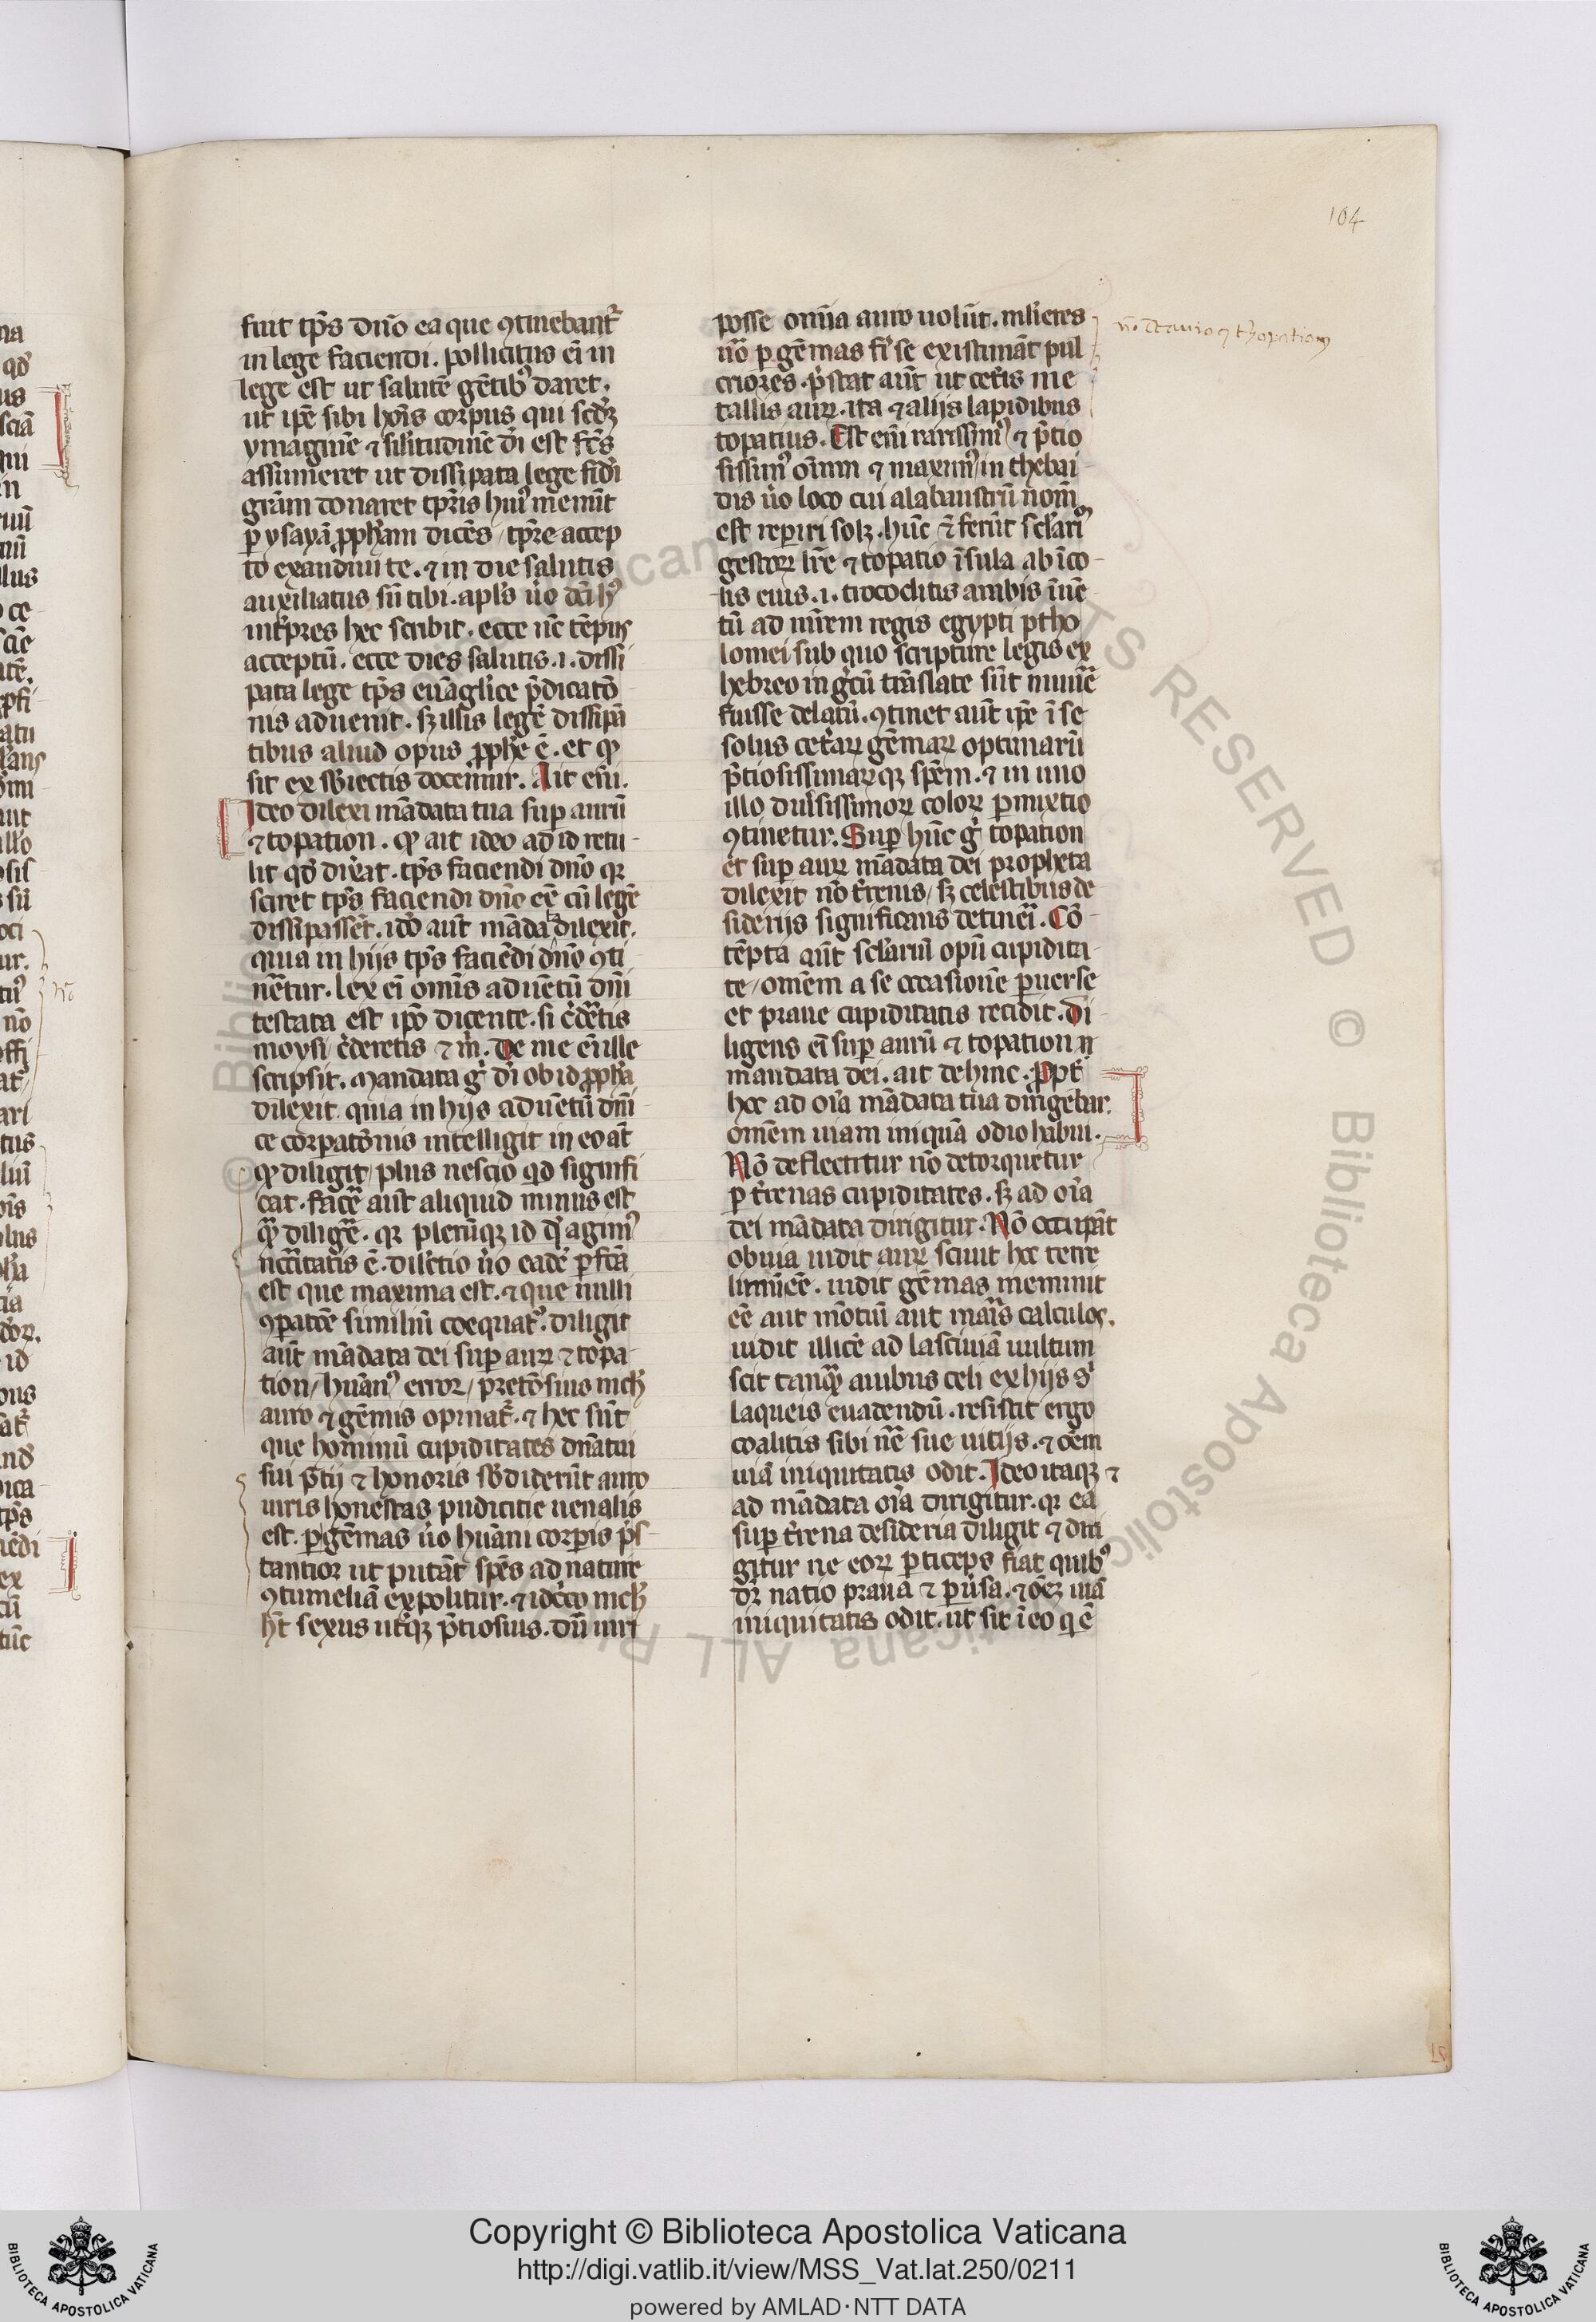 104
fuit tp̄s dn̄o ea que ꝯtinebant᷑
in lege faciendi. pollicitus ei̅ in
lege est ut salutē gētibꝰ daret.
ut ip̄e sibi hoīs corpus qui scd̄ꝫ
ymaginē ⁊ sil̓itudinē dī est fc̄s
assumeret ut dissipata lege fidī
gr̄am donaret tp̄ris huiꝰ memīt
ꝑ ysayā ꝓph̄am dicēs / tp̄re accep
to exaudiui te. ⁊ in die salutis
auxiliatus sū tibi. apl̓s ūo
int̓pres hec scribit. ecce nc̄ tēpus
acceptū. ecce dies salutis. .i. dissi
pata lege tp̄s euāglice p̄dicatō
nis aduenit. sꝫ ill̓is legē dissipā
tibus aliud opus ꝓph̄e ē. et qͥ
sit ex sb̓iectis docemur. Ait em̄.
Ideo dilexi mādata tua suꝑ aurū
⁊ topation. qͥ ait ideo ad id retu-
lit qd̓ dix̓at. tp̄s faciendi dn̄o qꝛ
sciret tp̄s faciendi dn̄o eē cū legē
dissipassēt. idō aut̄ mādata dilexit.
quia in hijs tp̄s faciēdi dn̄o ꝯti
nētur. lex ei̅ omīs aduētū dn̄i
testata est ip̄o dicente. si c̓detis
moysi c̓deretis ⁊ m̓. De me em̄ ille
scripsit. Mandata gͦ dī ob id ꝓph̄a
dilexit quia in hijs aduētū dn̄i
ce corꝑatōnis intelligit in eo at̄
qͥ diligit / plus nescio qd̓ signifi
cat. facē aut̄ aliquid minus est
qͣ diligē. qꝛ plerūqꝫ id qd̓ agimꝰ
nc̄citatis ē. dilc̄tio ūo eadē ꝑfcā
est que maxima est. ⁊ que nulli
ꝯꝑatōe similiū coequat᷑. diligit
aut̄ mādata dei suꝑ auꝝ ⁊ topa-
tion / huānꝰ error / pretōsius nich̓
auro ⁊ gēmis opinat᷑. ⁊ hec sūt
que hominū cupiditates dn̄atui
sui p̄tij ⁊ honoris sb̓diderūt auro
uiris honestas pudicitie uenalis
est. ꝑ gēmas ūo huāni corꝑis p̄s-
tantior ut putāt spēs ad nature
ꝯtumeliā expolitur. ⁊ idc̓co nich̓
hn̄t sexus ut̓qꝫ p̄tiosius. dū uiri
posse om̄ia auro uolūt. ml̓ieres
ūo ꝑ gēmas fi̓ se existimāt pul
criores. p̓stat aut̄ ut cet̓is me
tallis auꝝ. ita ⁊ alijs lapidibus
topatius. Est em̄ rarissimꝰ ⁊ p̄tio
sissimꝰ oīum ⁊ maximꝰ in thebai-
dis ūo loco cui alabaustrū nom̄
est reperiri solꝫ. hūc ⁊ ferūt scl̓ariꝰ
gestoꝝ lr̄e ⁊ topatio īsula ab īco-
lis eius. .i. trocoditis arabis īuē
tū ad mr̄em regis egypti ptho
lomei sub quo scripture legis ex
hebreo in g̓cū trāslate sūt
fuisse delatū. ꝯtinet aut̄ ip̄e ī se
solus cet̓aꝝ gēmaꝝ optimarū
p̄tiosissimaꝝqꝫ spēm. ⁊ in uno
illo diu̓sissimoꝝ coloꝝ ꝑmixtio
ꝯtinetur. Suꝑ hūc gͦ topation
et suꝑ auꝝ mādata dei propheta
dilexit nō t̓renis / sꝫ celestibus de
siderijs significans detineri. Cō-
tēpta aut̄ scl̓ariū opū cupidita-
te / omēm a se occasionē ꝑuerse
et praue cupiditatis recidit. Di-
ligens ei̅ suꝑ aurū ⁊ topation
mandata dei. ait dehinc. Propt̓
hec ad oīa mādata tua dirigebar.
omēm uiam iniquā odio habui.
Nō deflectitur nō detorquetur
ꝑ t̓renas cupiditates. sꝫ ad oīa
dei mādata dirigitur. Nō occupāt
obuia uidit auꝝ sciuit hec terre
limū eē. uidit gēmas meminit
eē aut mōtiū aut mar̄is calculos.
uidit illicē ad lasciuiā uultum
scit tanqͣ auibus celi ex hijs s̓
laqueis euadendū. resistit ergo
coalitis sibi nr̄e sue uitijs. ⁊ oēm
uiā iniquitatis odit. Ideo itaqꝫ ⁊
ad mādata oīa dirigitur. qꝛ ea
suꝑ t̓rena desideria diligit ⁊ diri
gitur ne eoꝝ ꝑticeps fiat quibꝰ
dr̄ natio praua ⁊ ꝑu̓sa. ⁊ oēꝫ uiā
iniquitatis odit. ut sit ī eo qͥ ē
Copyright © Biblioteca Apostolica Vaticana
http://digi.vatlib.it/view/MSS_Vat.lat.250/0211
powered by AMLAD·NTT DATA
BIBLIOTECA APOSTOLICA VATICANA
BIBLIOTECA APOSTOLICA VATICANA